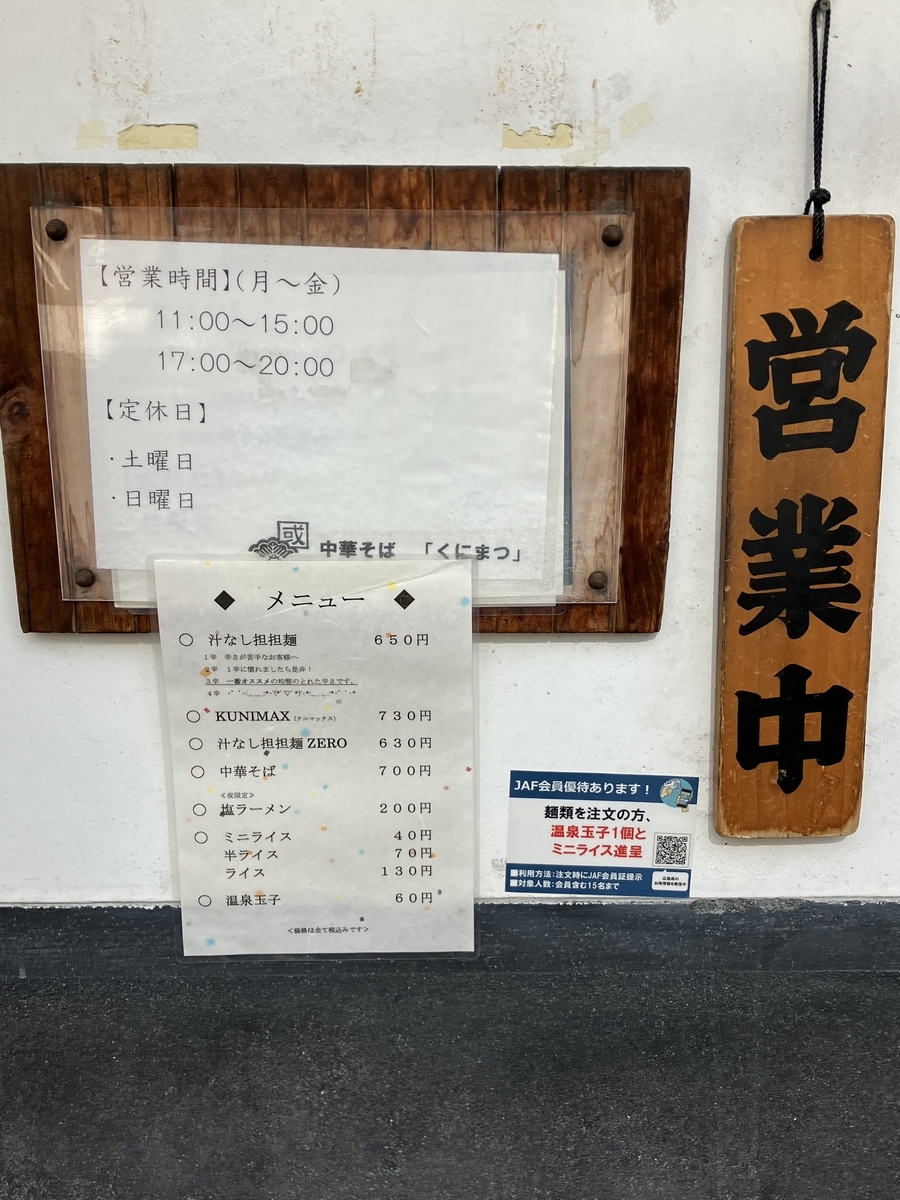 【営業時間】(月～金)
11:00～15:00
17:00～20:00
【定休日】
・土曜日
・日曜日
國
中華そば 「くにまつ」
営業中
◆ メニュー ◆
○ 汁なし担担麺 650円
1辛 辛さが苦手なお客様へ
2辛 1辛に慣れましたら是非!
3辛 一番オススメの均整のとれた辛さです。
4辛
○ KUNIMAX (クニマックス) 730円
○ 汁なし担担麺 ZERO 630円
○ 中華そば 700円
≪夜限定≫
○ 塩ラーメン 200円
○ ミニライス 40円
半ライス 70円
ライス 130円
○ 温泉玉子 60円
<価格は全て税込みです>
JAF会員優待あります!
麺類を注文の方、
温泉玉子1個と
ミニライス進呈
■利用方法:注文時にJAF会員証提示
■対象人数:会員含む15名まで
広島県の
お得情報を発信中